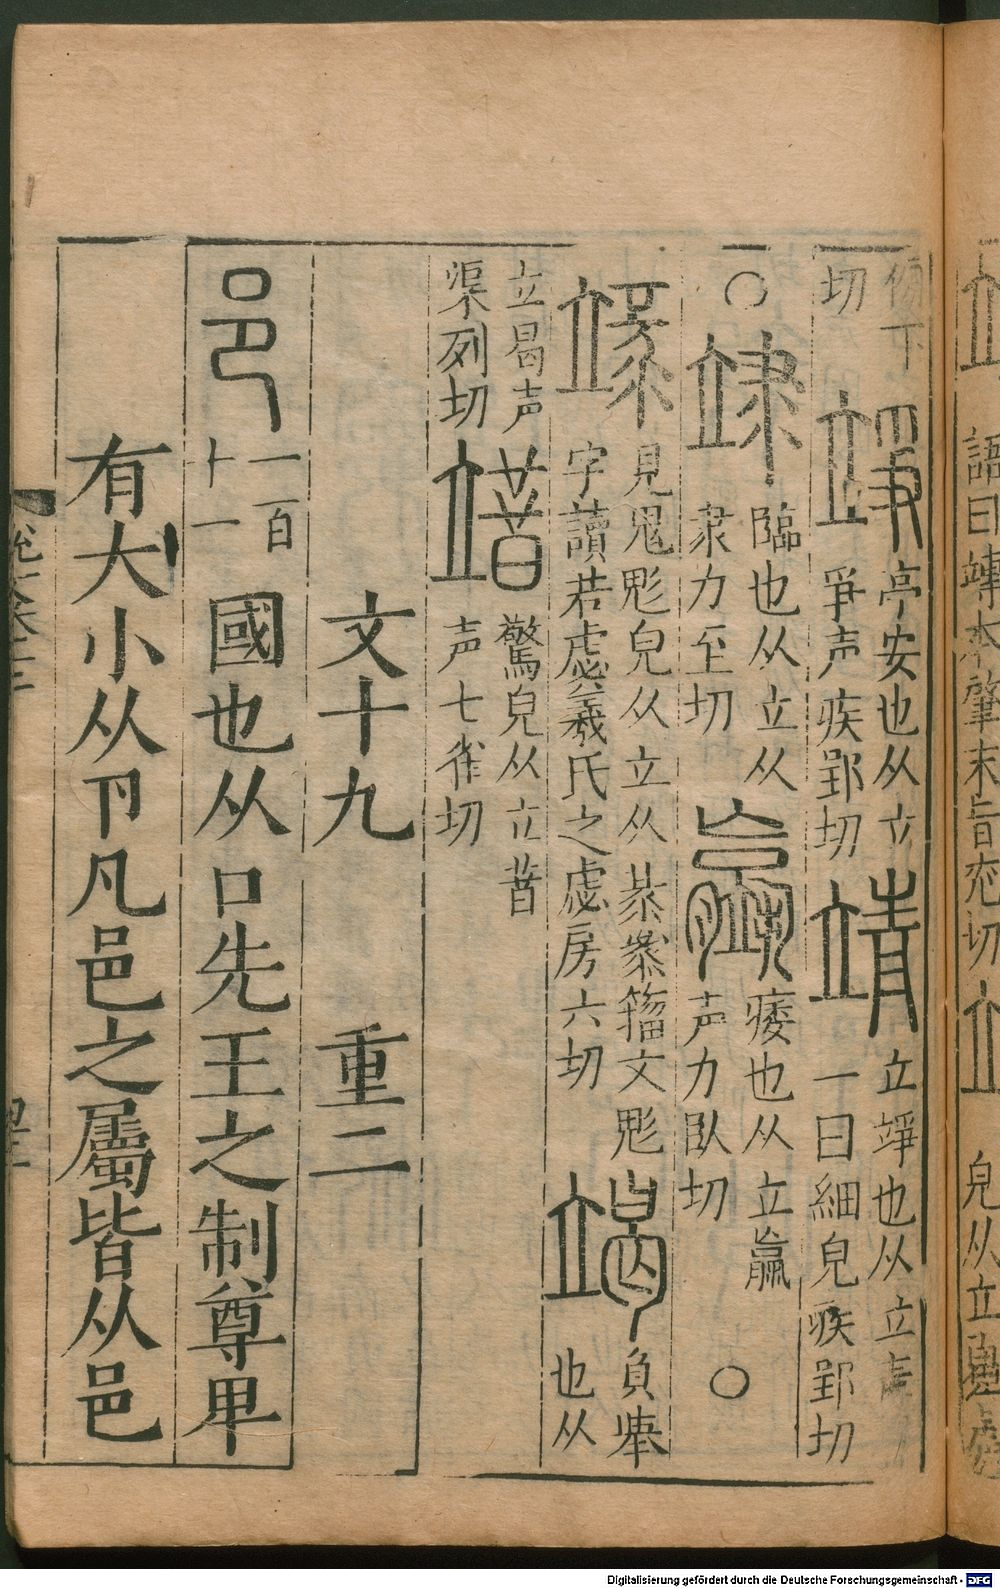 語曰竱本肇末旨沇切
皃从立
切
竫
亭安也从立
爭声疾郢切
靖
立竫也从立
一曰細皃疾郢切
〇
䇐
臨也从立从
隶力至切
痿也从立羸
声力臥切
〇
見鬼彪皃从立从彔彔籀文彪
字讀若虙羲氏之虙房六切
竭
負舉
也从
立曷声
渠列切
䇎
驚皃从立昔
声七雀切
文十九 重二
邑
一百
十一
國也从口先王之制尊卑
有大小从卪凡邑之屬皆从邑
Digitalisierung gefördert durch die Deutsche Forschungsgemeinschaft - DFG